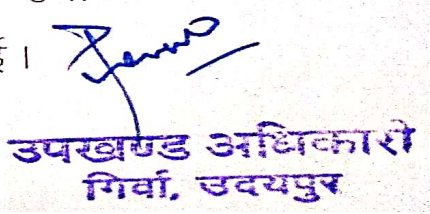 ई ।
उपखण्ड अधिकारी
गिर्वा, उदयपुर